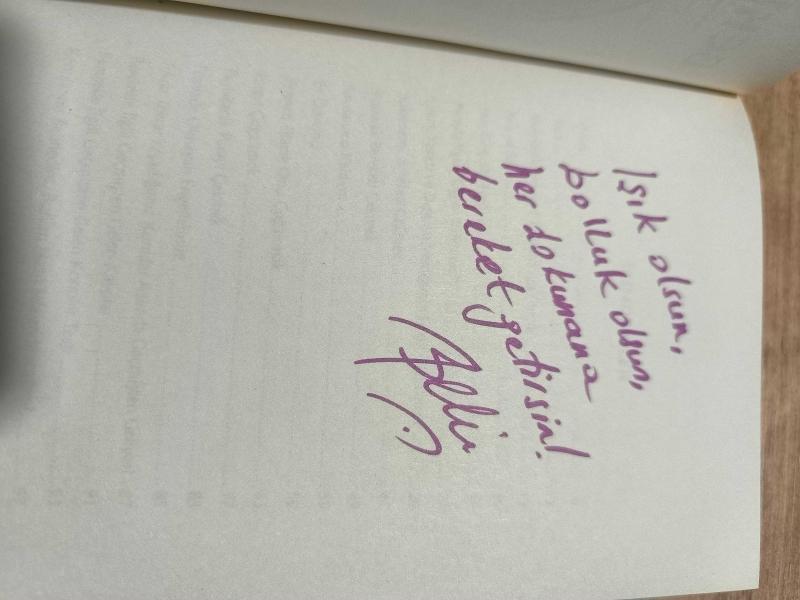 Işık olsun,
bolluk olsun,
her dokunana
bereket getirsin!